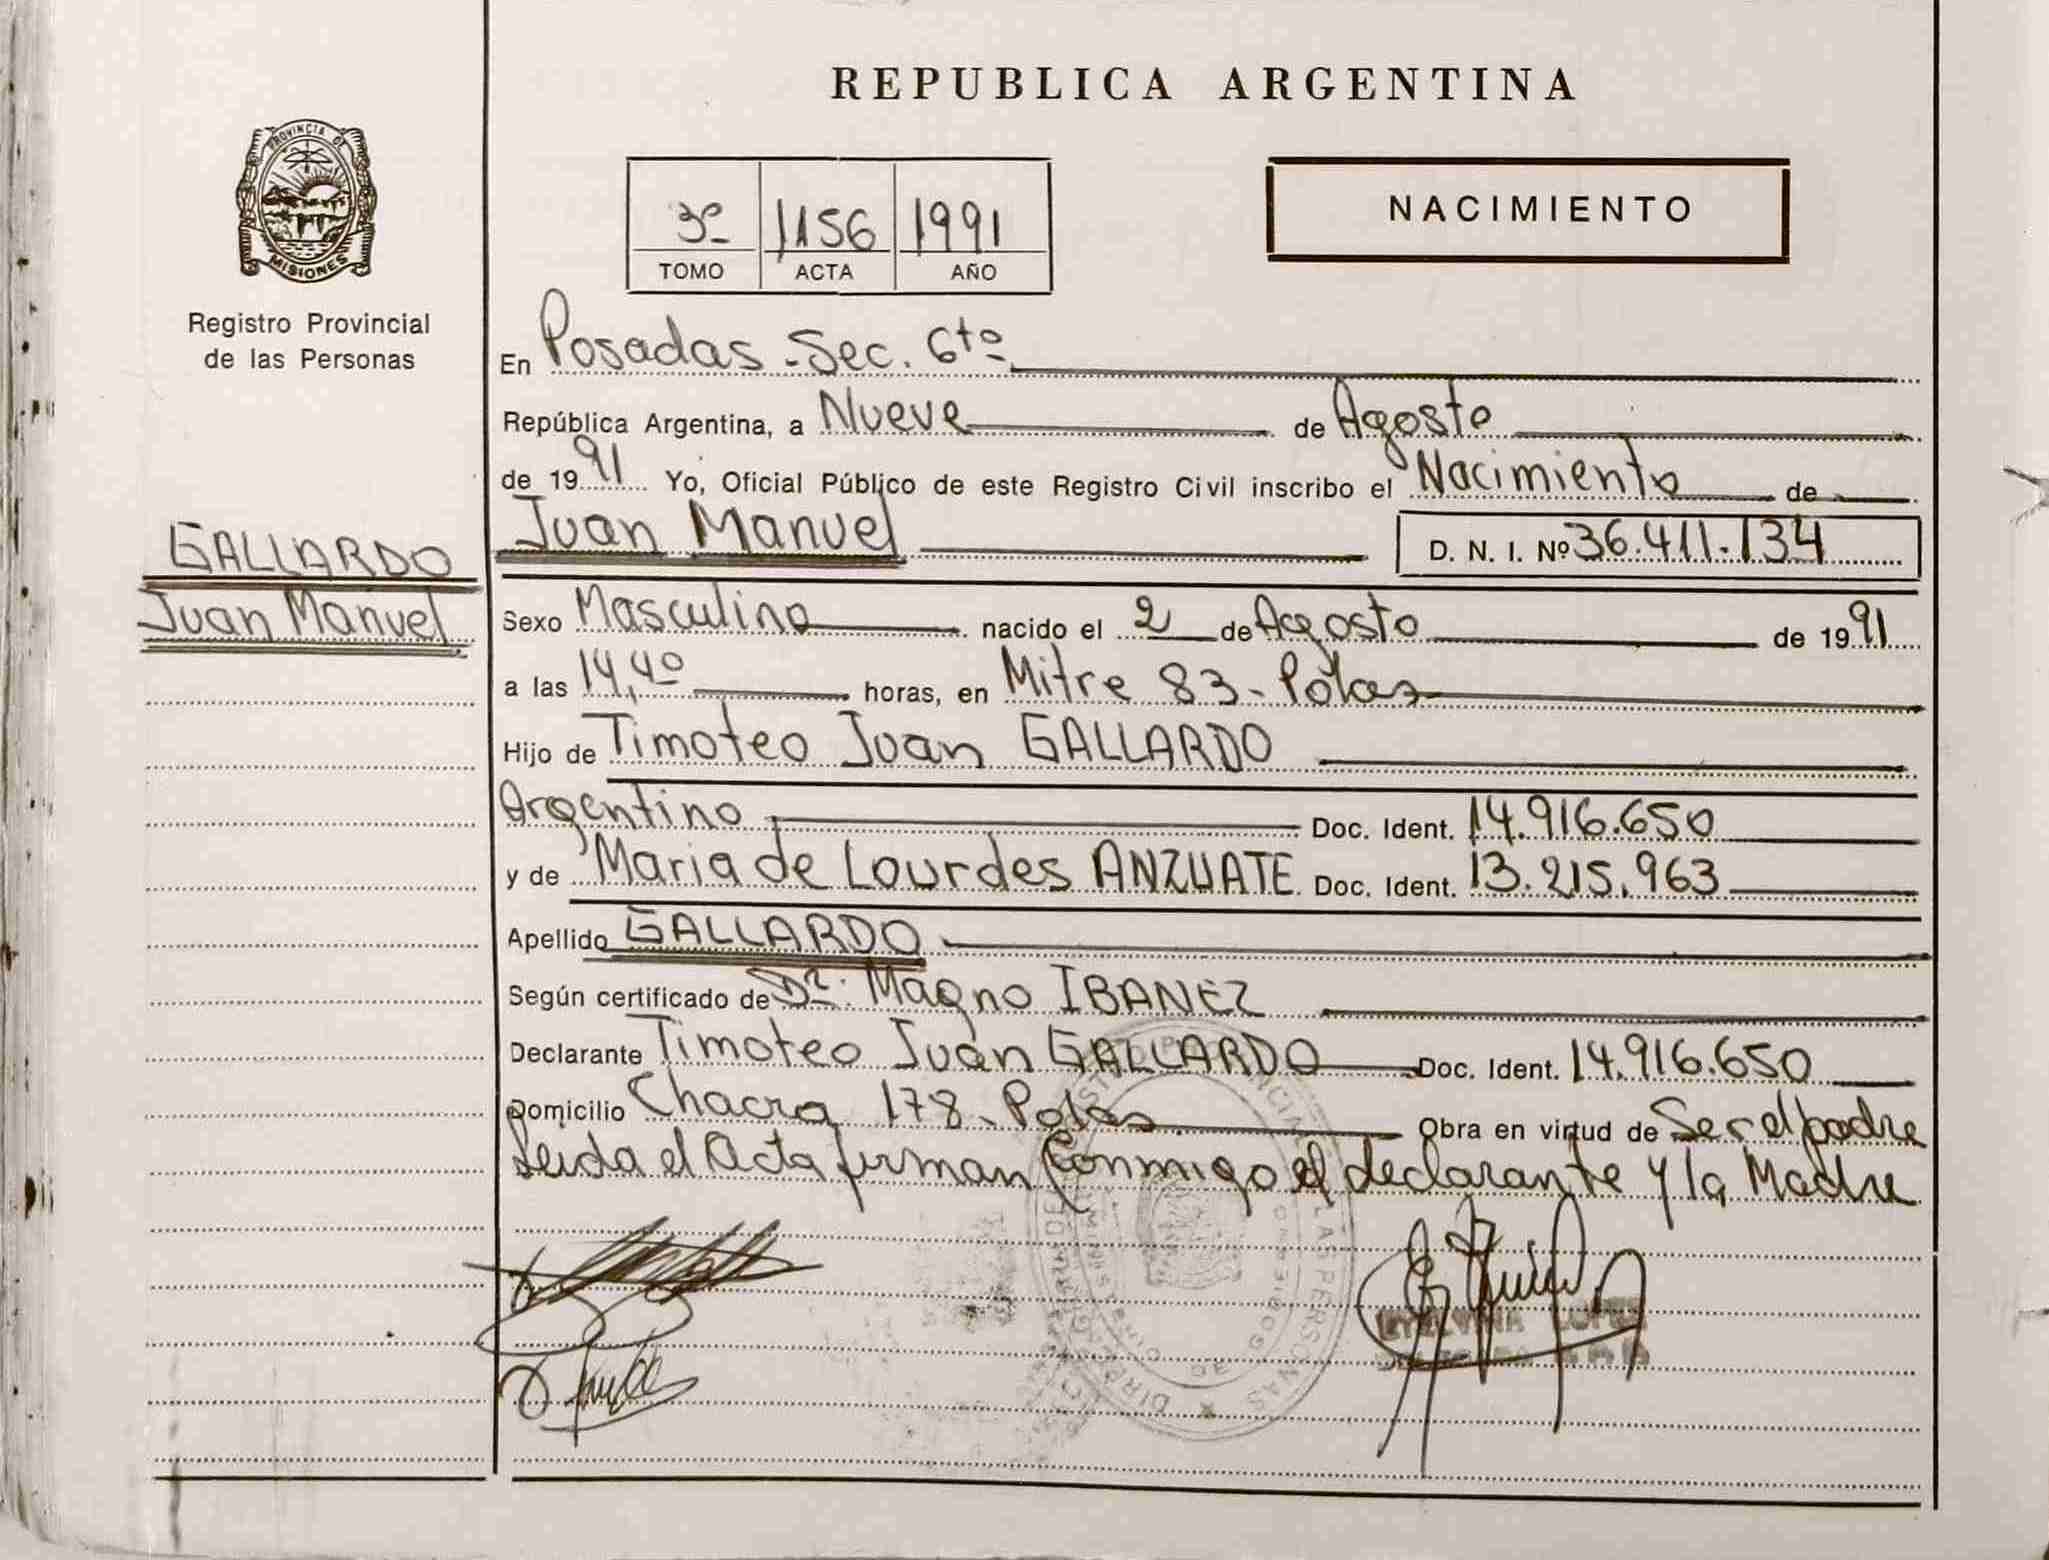 REPUBLICA ARGENTINA
PROVINCIA DE
MISIONES
Registro Provincial
de las Personas
3º 1156 1991
TOMO ACTA AÑO
NACIMIENTO
En Posadas - Sec. 6tº
República Argentina, a Nueve de Agosto
de 1991 Yo, Oficial Público de este Registro Civil inscribo el Nacimiento de
Juan Manuel D. N. I. Nº 36.411.134
GALLARDO
Juan Manuel
Sexo Masculino nacido el 2 de Agosto de 1991
a las 14,40 horas, en Mitre 83 - Pdas
Hijo de Timoteo Juan GALLARDO
Argentino Doc. Ident. 14.916.650
y de Maria de Lourdes ANZUATE Doc. Ident. 13.215.963
Apellido GALLARDO
Según certificado de Dr. Magno IBANEZ
Declarante Timoteo Juan GALLARDO Doc. Ident. 14.916.650
Domicilio Chacra 178 - Pdas Obra en virtud de Ser el padre
Leida el Acta firman Conmigo el declarante y la Madre